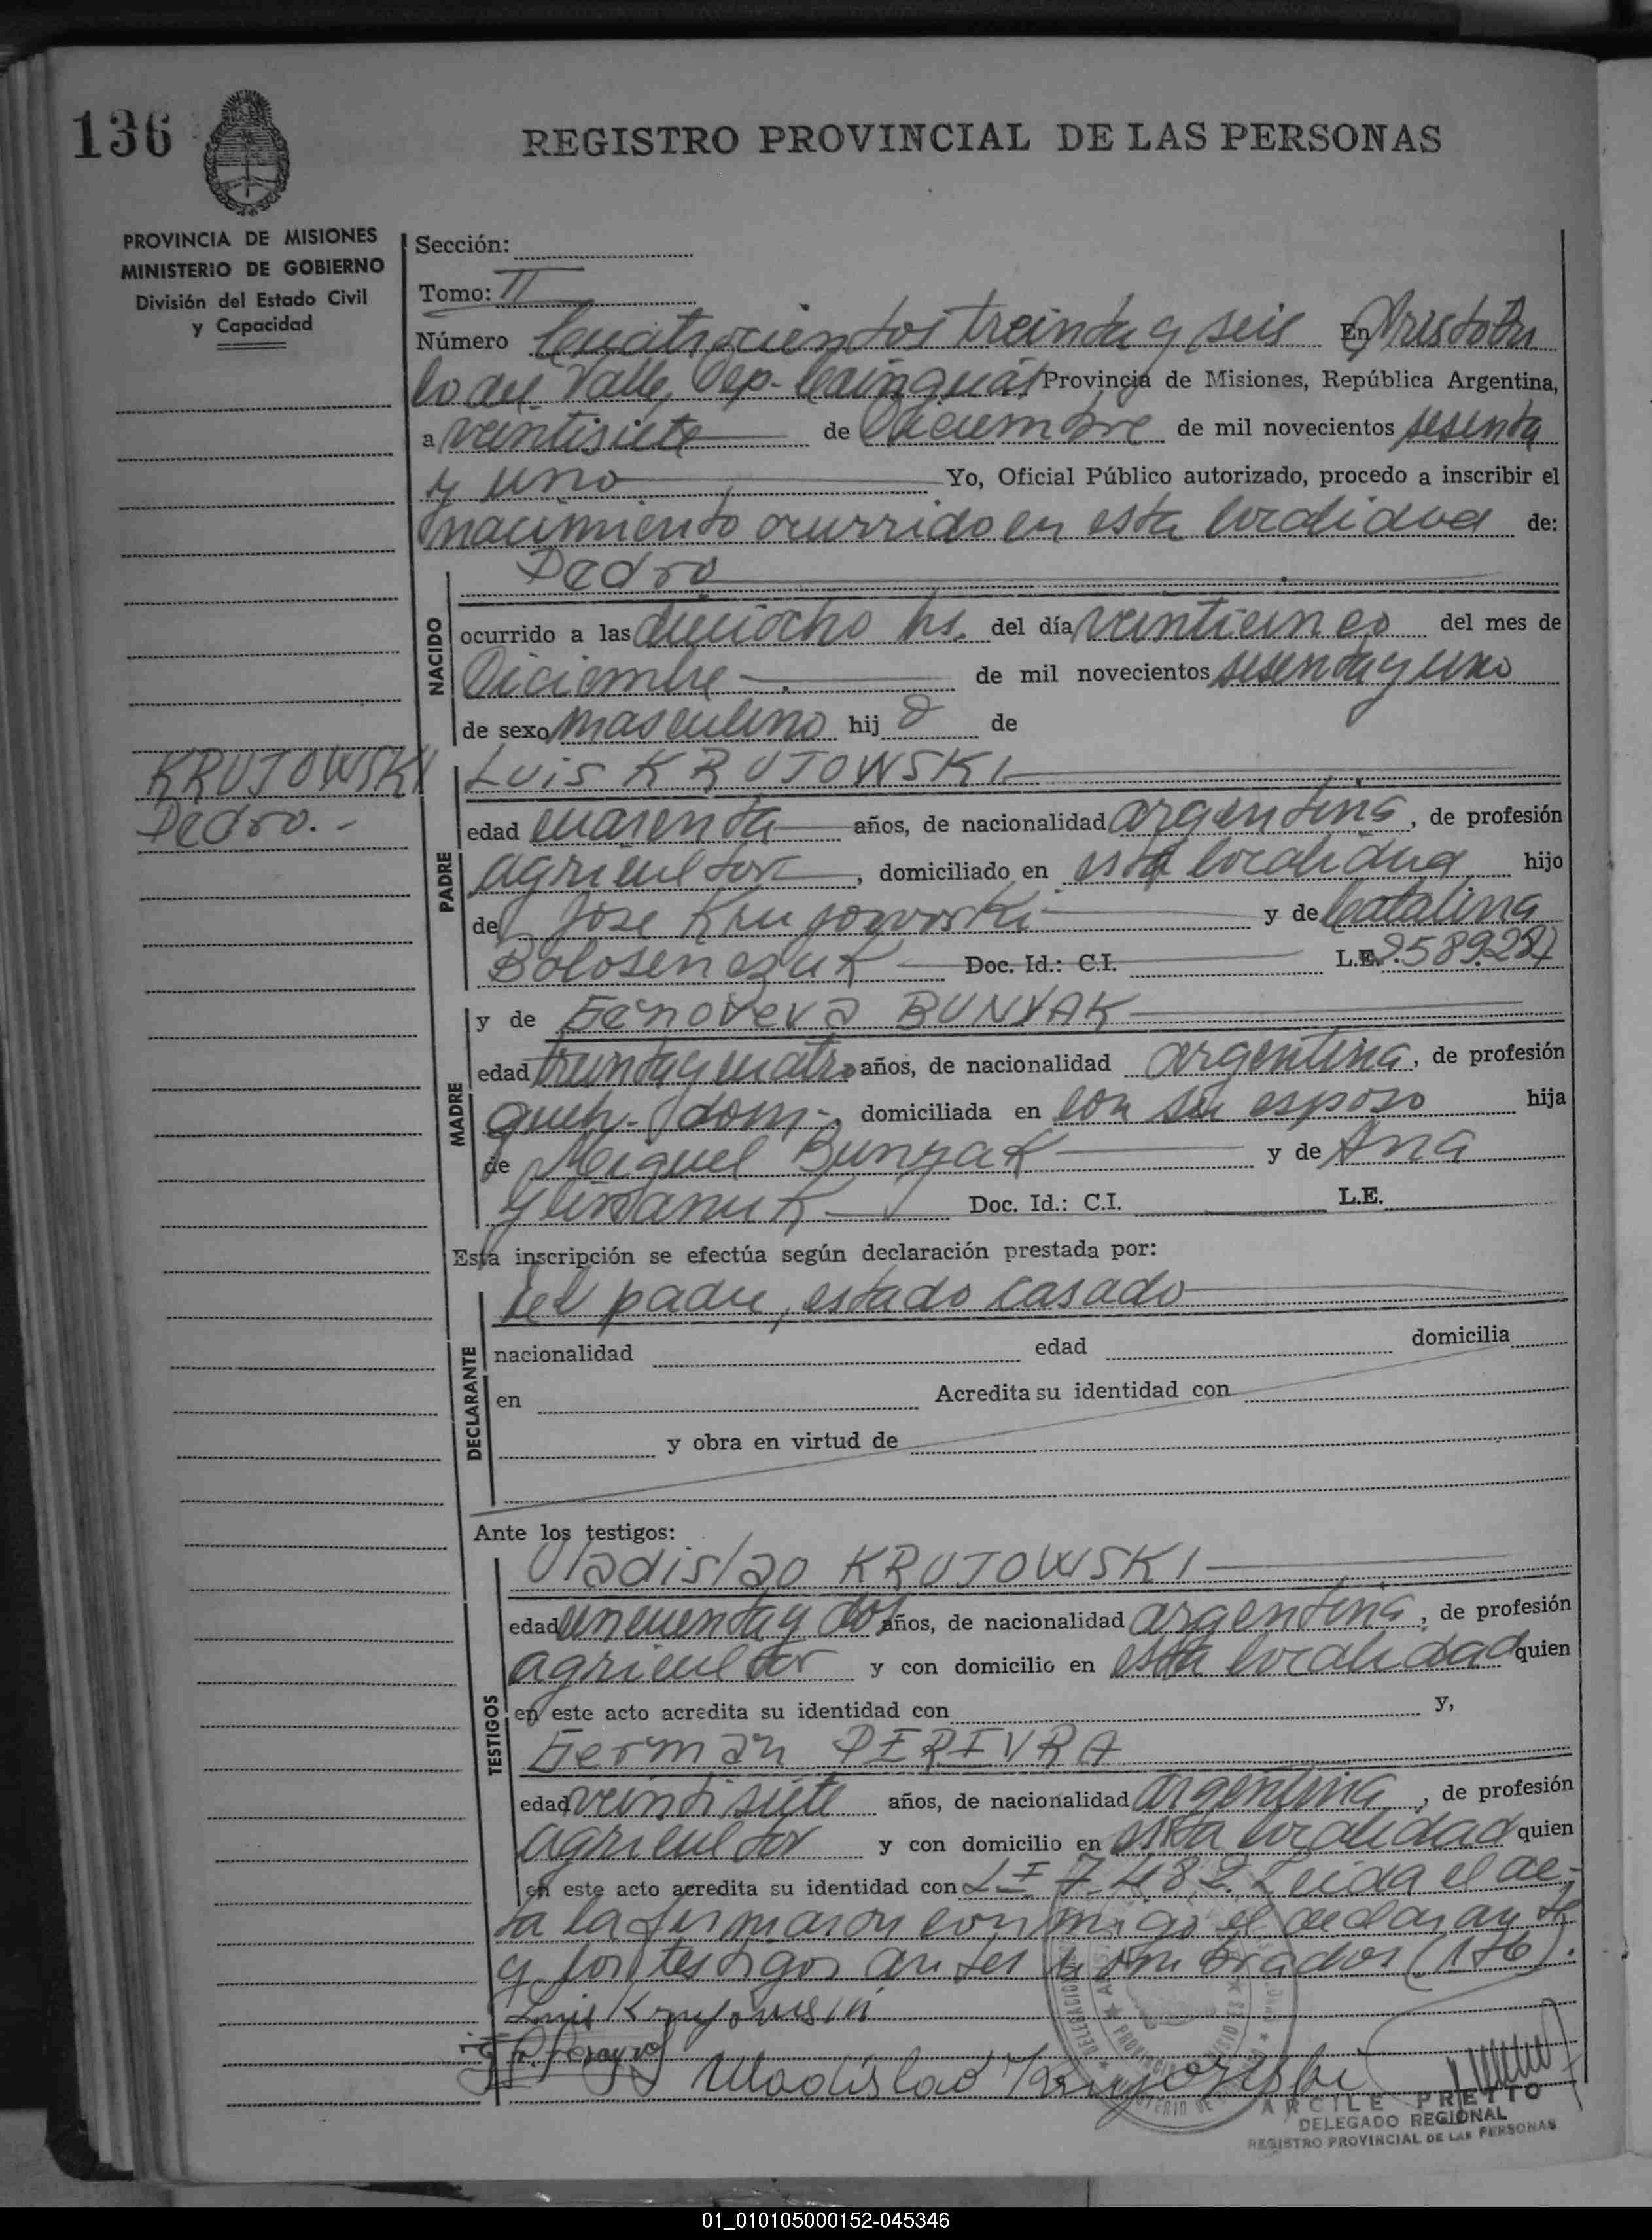 136
REGISTRO PROVINCIAL DE LAS PERSONAS
PROVINCIA DE MISIONES
MINISTERIO DE GOBIERNO
División del Estado Civil
y Capacidad
Sección:
Tomo: II
Número Cuatrocientos treinta y seis En Aristóbu
lo del Valle, Dep. Cainguás Provincia de Misiones, República Argentina,
a veintisiete de Diciembre de mil novecientos sesenta
y uno Yo, Oficial Público autorizado, procedo a inscribir el
nacimiento ocurrido en esta localidad de:
NACIDO
Pedro
ocurrido a las dieciocho hs. del día veinticinco del mes de
Diciembre de mil novecientos sesenta y uno
de sexo masculino hij o de
KRUJOWSKI
Pedro.-
PADRE
Luis KRUJOWSKI
edad cuarenta años, de nacionalidad argentina, de profesión
agricultor, domiciliado en esta localidad hijo
de José Krujowski y de Catalina
Bolosenczuk Doc. Id.: C.I. L.E.
MADRE
y de Genoveva BUNYAK
edad treinta y cuatro años, de nacionalidad argentina, de profesión
queh. dom.-, domiciliada en con su esposo hija
de Miguel Bunyak y de Ana
Doc. Id.: C.I. L.E.
Esta inscripción se efectúa según declaración prestada por:
DECLARANTE
el padre, estado casado
nacionalidad edad domicilia
en Acredita su identidad con
y obra en virtud de
Ante los testigos:
TESTIGOS
Vladislao KRUJOWSKI
edad cincuenta y dos años, de nacionalidad argentina, de profesión
agricultor y con domicilio en esta localidad quien
en este acto acredita su identidad con y,
German PEREYRA
edad veintisiete años, de nacionalidad argentina, de profesión
agricultor y con domicilio en esta localidad quien
en este acto acredita su identidad con LE 7.482. Leida el ac-
ta la firmaron conmigo el declarante
y los testigos antes nombrados (176).
Luis Krujowski
Wladislao Krujowski
ARCILE PRETTO
DELEGADO REGIONAL
REGISTRO PROVINCIAL DE LAS PERSONAS
01_010105000152-045346